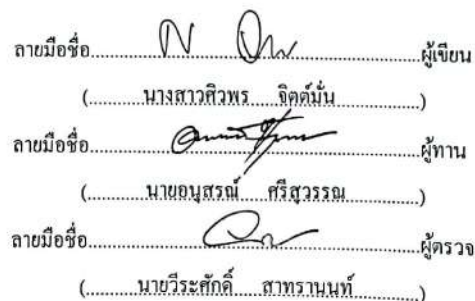 ลายมือชื่อ........................................ผู้เขียน
(........นางสาวศิวพร จิตต์มั่น........)
ลายมือชื่อ........................................ผู้ทาน
(........นายอนุสรณ์ ศรีสุวรรณ........)
ลายมือชื่อ........................................ผู้ตรวจ
(........นายวีระศักดิ์ สาทรานนท์........)